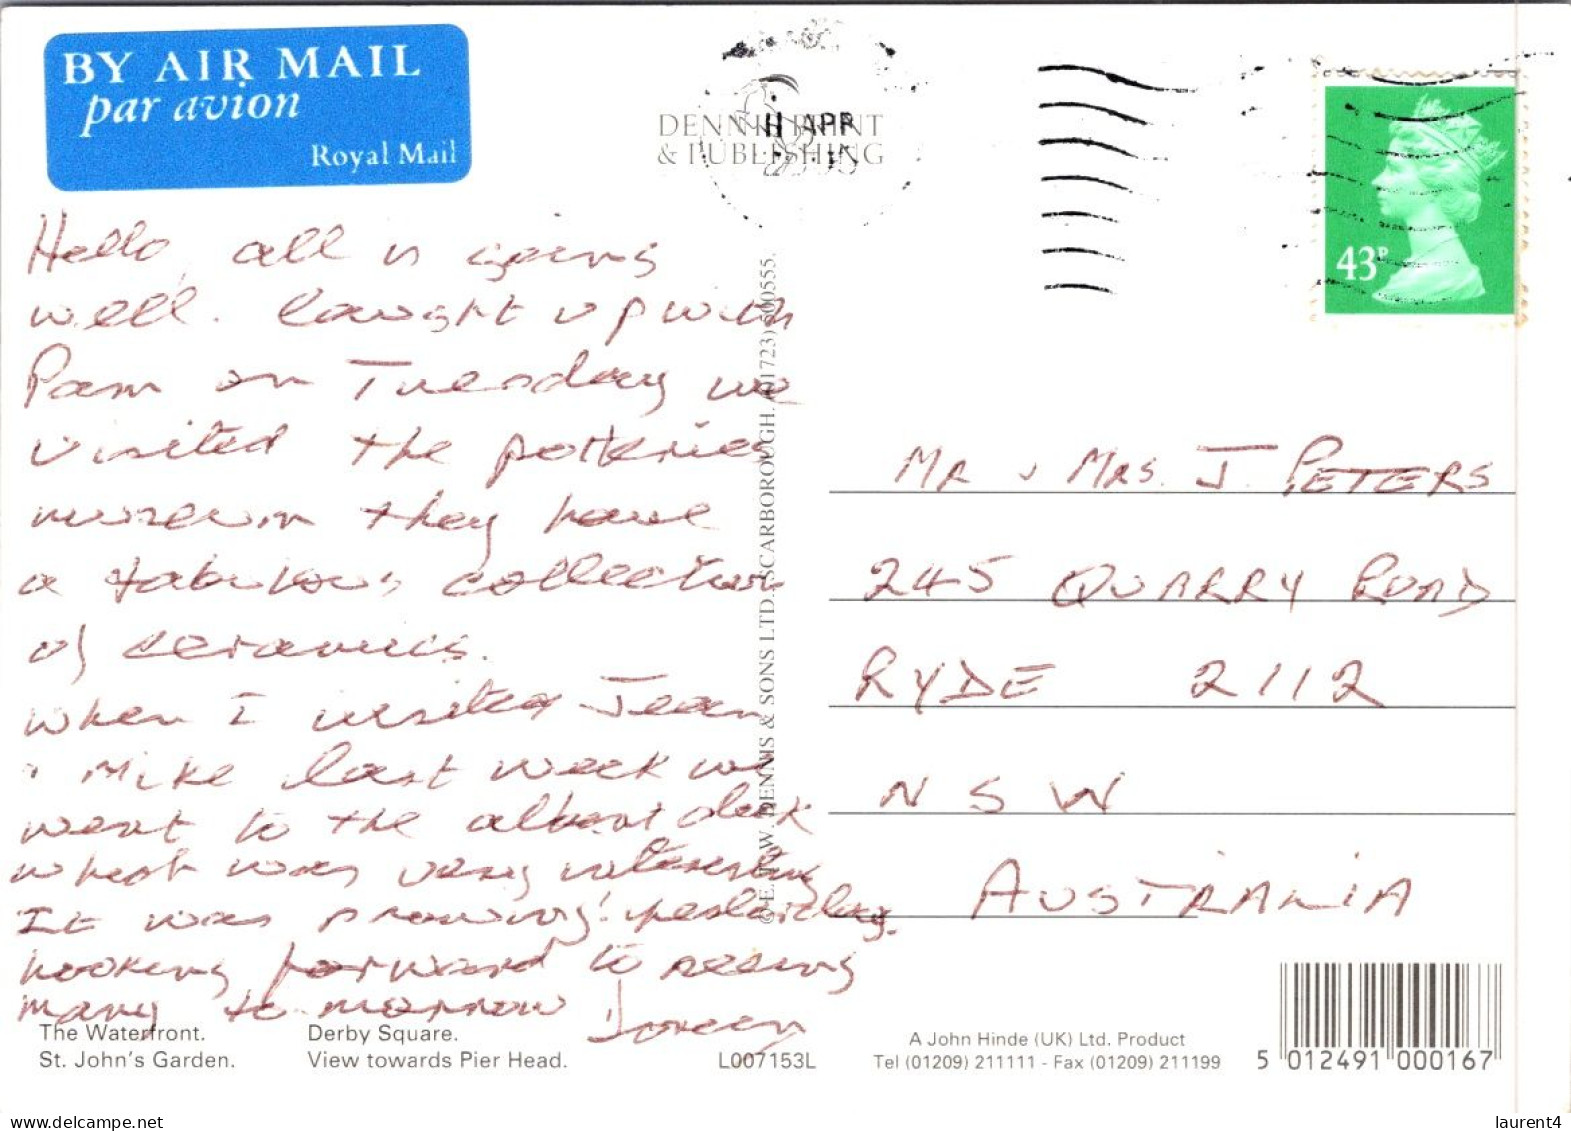 BY AIR MAIL
par avion
Royal Mail
DENNIS PRINT
& PUBLISHING
11 APR
43P
Hello, all is going
well. Caught up with
Pam on Tuesday we
visited the potteries
museum they have
a fabulous collection
of ceramics.
When I visited Jean
& Mike last week we
went to the albert dock
what was very interesting
It was snowing! yesterday.
Looking forward to seeing
Mary to morrow Doreen
© E.T.W. DENNIS & SONS LTD., SCARBOROUGH. (01723) 500555.
MR & MRS. J. PETERS
245 QUARRY ROAD
RYDE 2112
NSW
AUSTRALIA
The Waterfront. Derby Square.
St. John's Garden. View towards Pier Head.
L007153L
A John Hinde (UK) Ltd. Product
Tel (01209) 211111 - Fax (01209) 211199
5 012491 000167
www.delcampe.net
laurent4